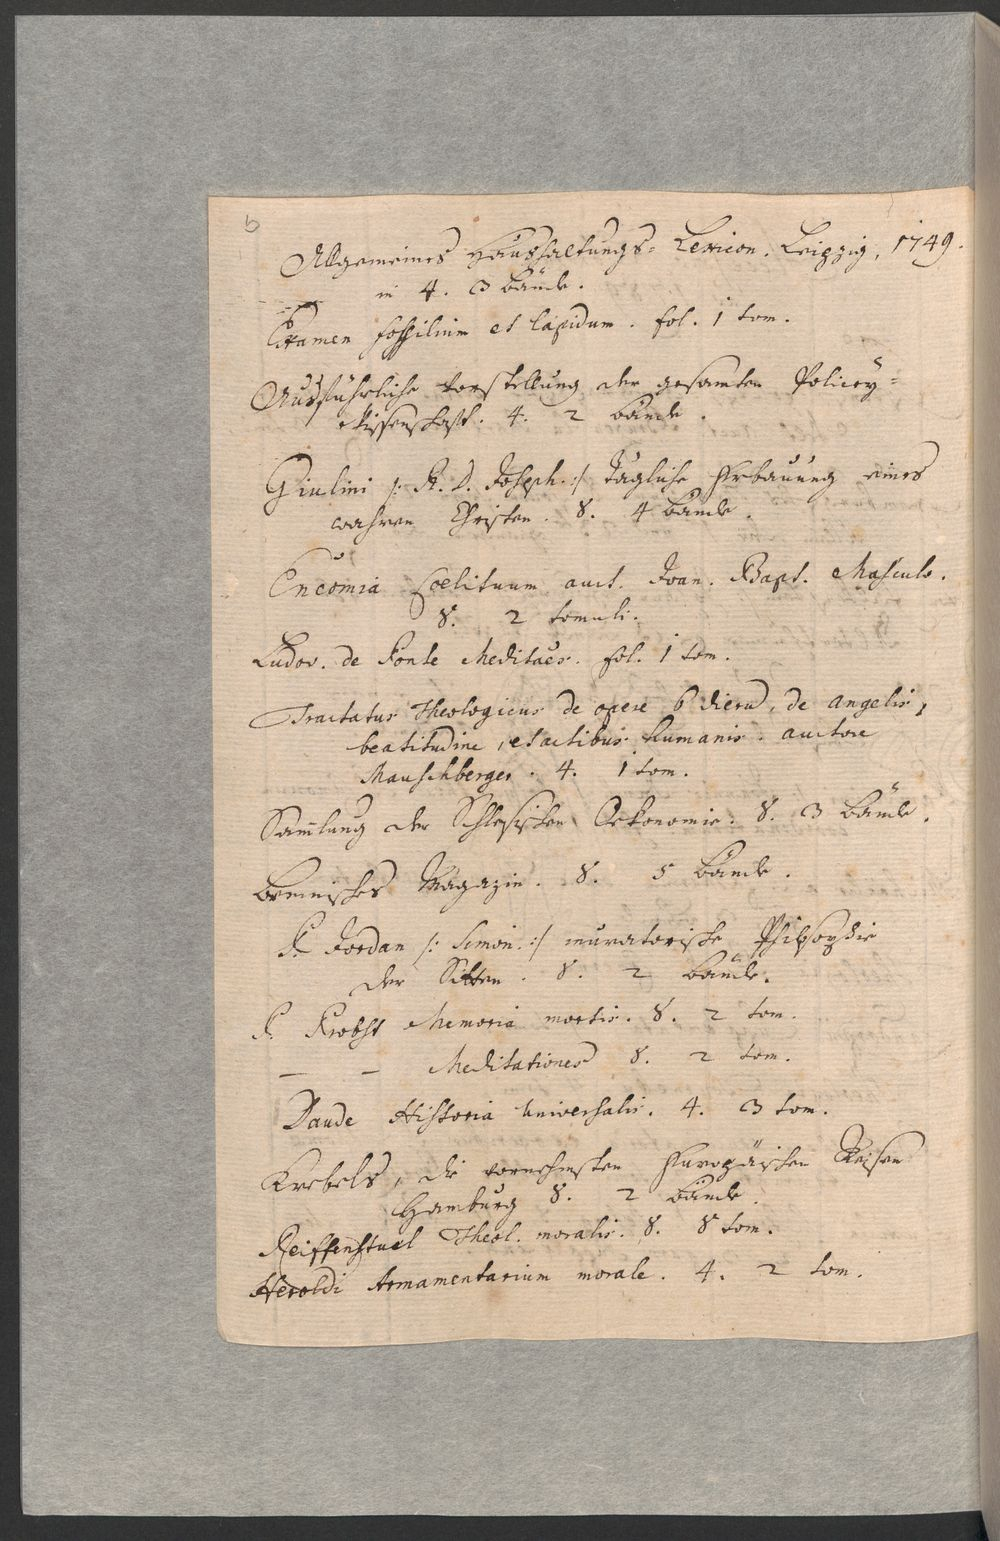 6
Allgemeines Haushaltungs-Lexicon. Leipzig, 1749.
in 4. 3 Bände.
Examen fossilium et lapidum. fol. 1 tom.
Ausführliche Vorstellung der gesamten Policey-
Wissenschaft. 4. 2 Bände.
Giulini /: P. D. Joseph. :/ Tägliche Erbauung eines
wahren Christen. 8. 4 Bände.
Encomia Coelituum auct. Joan. Bapt. Masculo.
8. 2 tomuli.
Ludov. de Ponte Meditaões. fol. 1 tom.
Tractatus Theologicus de opere 6 dierū, de angelis,
beatitudine, et actibus humanis. auctore
Mauschberger. 4. 1 tom.
Sam̄lung der Schlesischen Oekonomie. 8. 3 Bände.
Bremisches Magazin. 8. 5 Bände.
P. Jordan /: Simon. :/ muratorische Philosophie
der Sitten. 8. 2 Bände.
P. Probst Memoria mortis. 8. 2 tom.
— — Meditationes 8. 2 tom.
Daude Historia Universalis. 4. 3 tom.
Krebels, die vornehmsten Europäischen Reisen
Hamburg 8. 2 Bände.
Reiffenstuel Theol. moralis. 8. 8 tom.
Heroldi Armamentarium morale. 4. 2 tom.